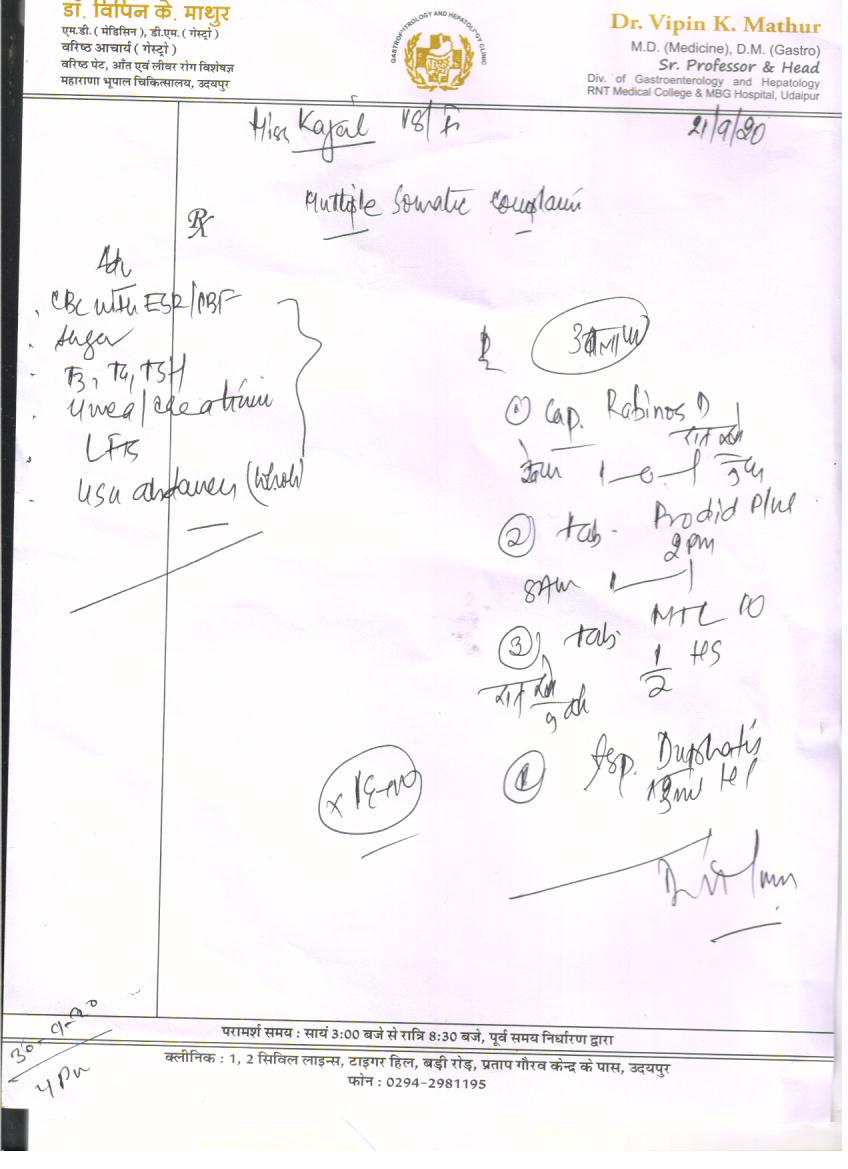 डॉ. विपिन के. माथुर
एम.डी. ( मेडिसिन ), डी.एम. ( गेस्ट्रो )
वरिष्ठ आचार्य ( गेस्ट्रो )
वरिष्ठ पेट, आँत एवं लीवर रोग विशेषज्ञ
महाराणा भूपाल चिकित्सालय, उदयपुर
Dr. Vipin K. Mathur
M.D. (Medicine), D.M. (Gastro)
Sr. Professor & Head
Div. of Gastroenterology and Hepatology
RNT Medical College & MBG Hospital, Udaipur
Miss Kajal 18/F
21/9/20
Multiple Somatic Complain
Rx
CBC with ESR/PBF
Sugar
T3, T4, TSH
Urea/creatinin
LFTs
USG abdomen (whole)
① Cap. Rabinos D
1-0-1
② tab. Prodid Plus
2pm
8AM
③ tab. MTL 10
1/2 HS
Syp. Duphatis
HS
30-9-20
4 PM
परामर्श समय : सायं 3:00 बजे से रात्रि 8:30 बजे, पूर्व समय निर्धारण द्वारा
क्लीनिक : 1, 2 सिविल लाइन्स, टाइगर हिल, बड़ी रोड़, प्रताप गौरव केन्द्र के पास, उदयपुर
फोन : 0294-2981195